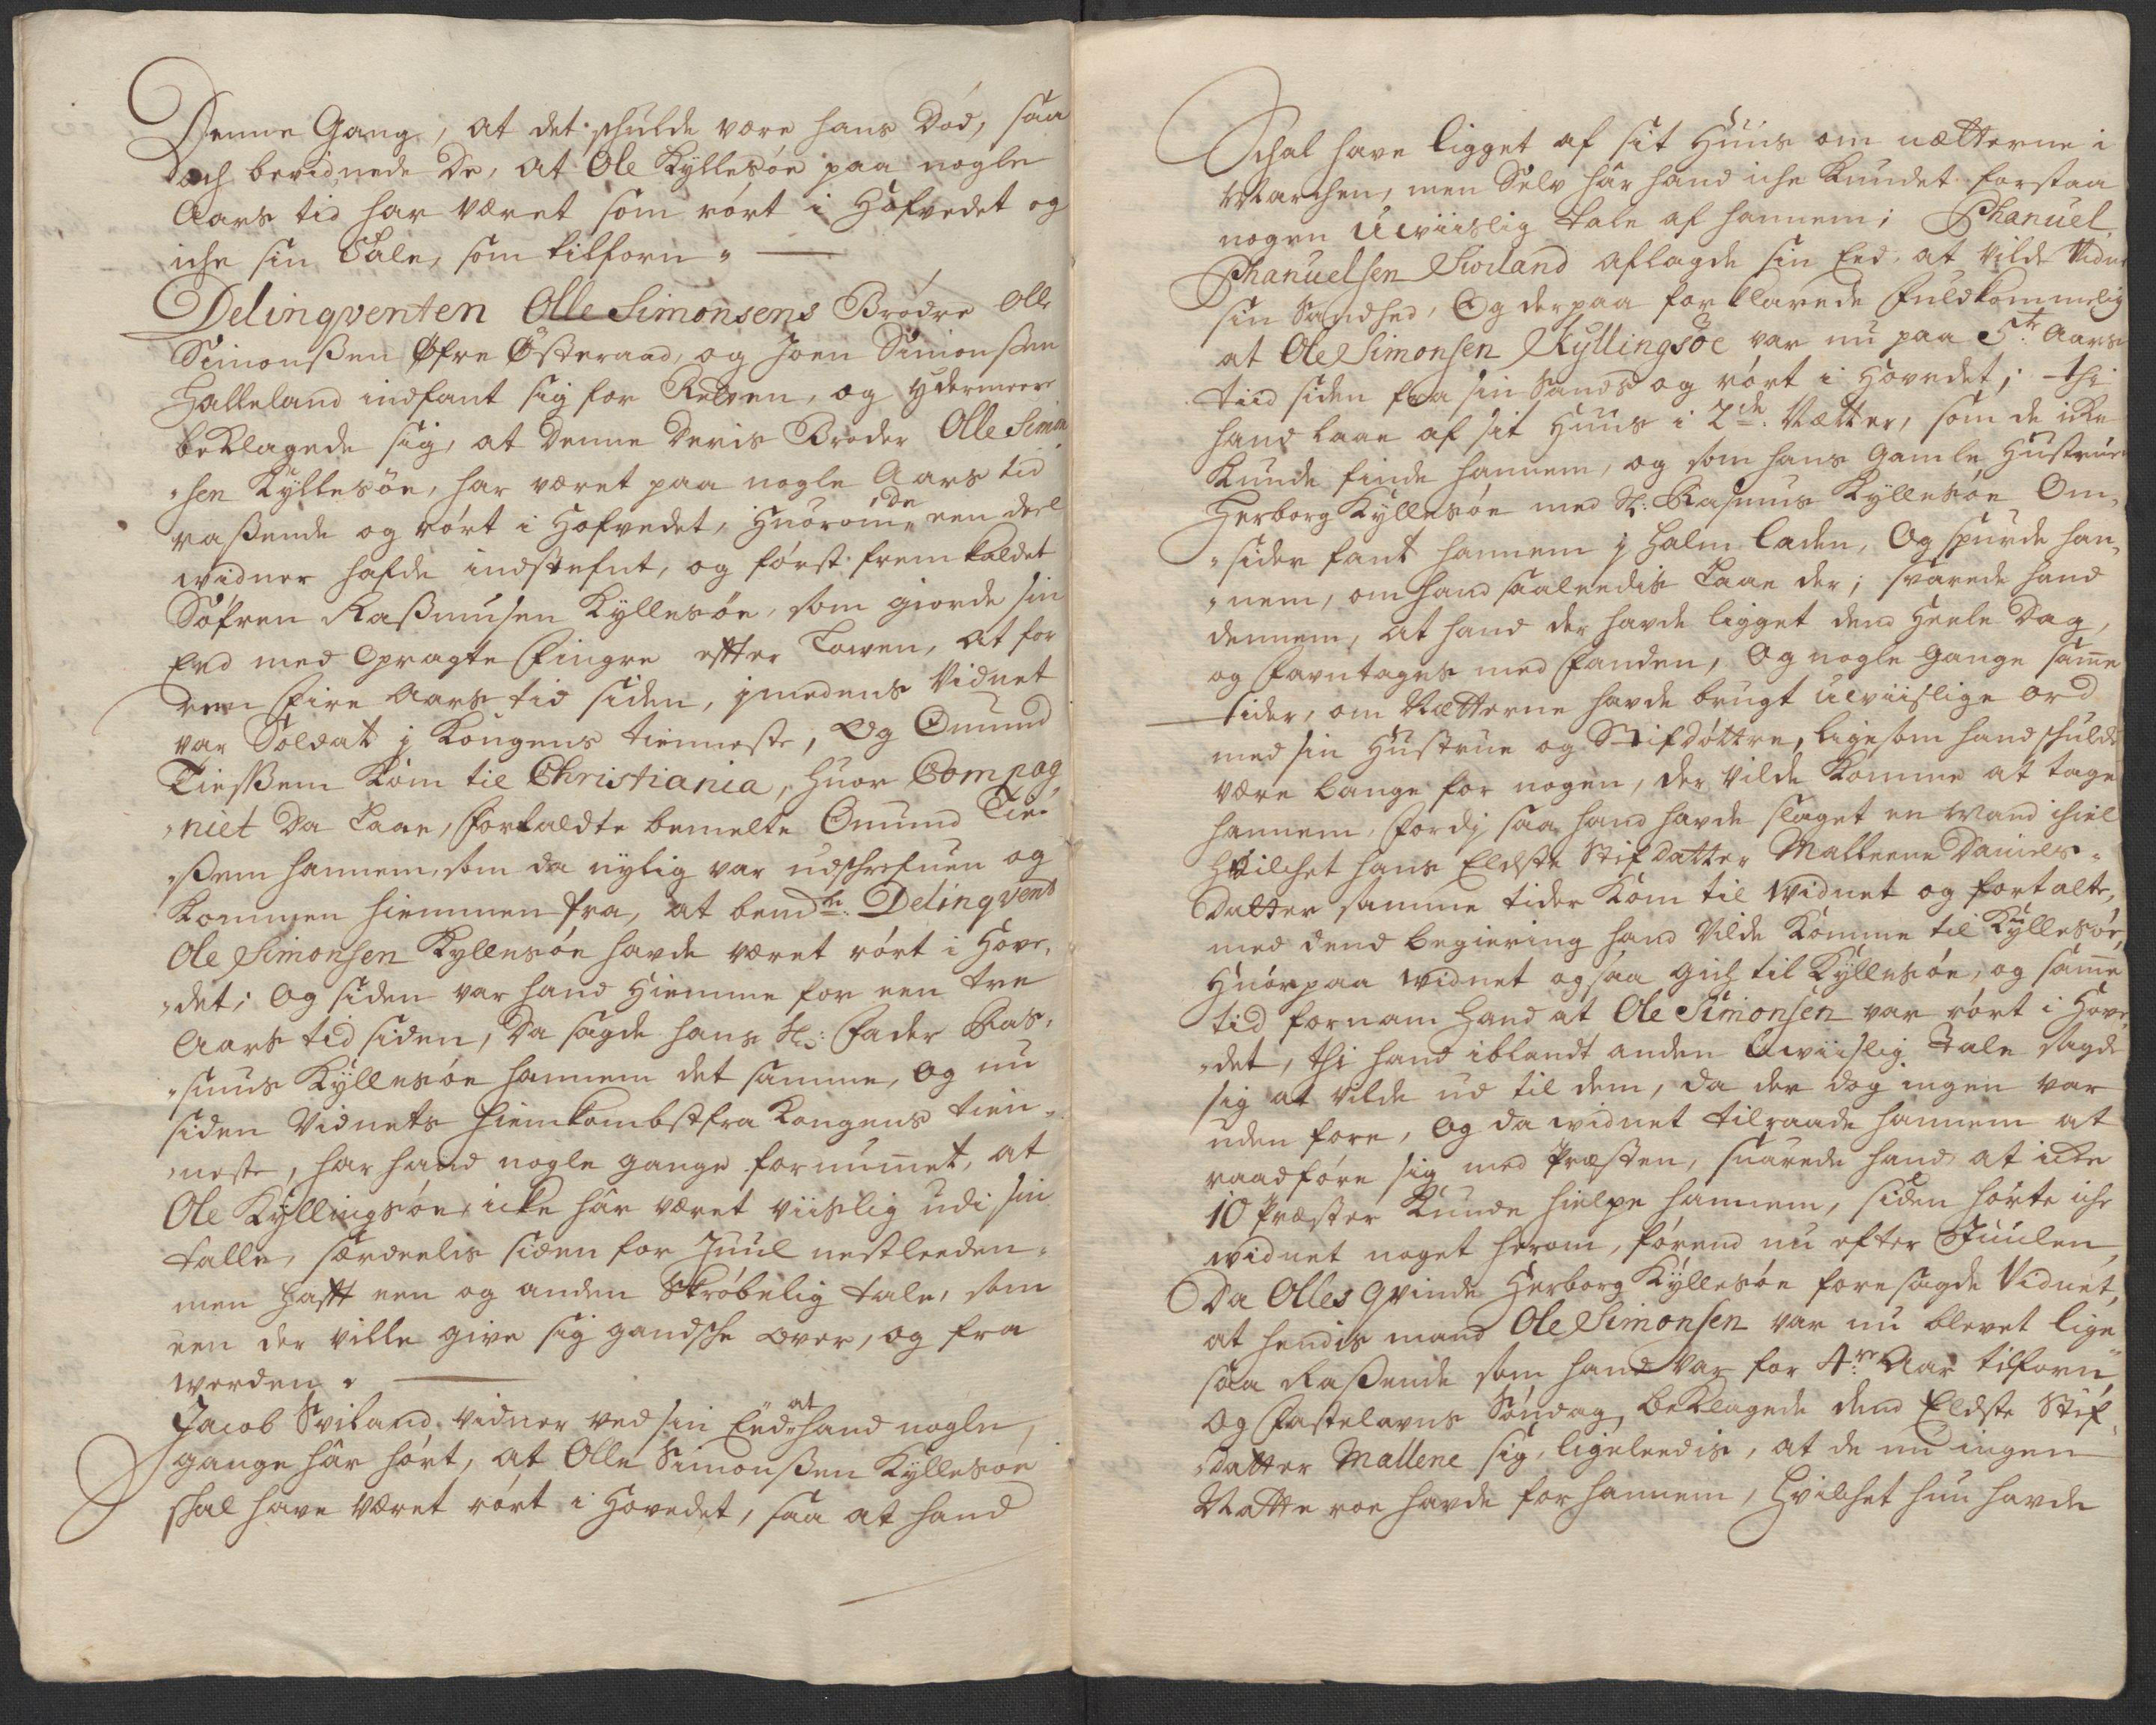 Denne Gang, at det schulde være hans Död, saa
doch bevidnede De, at Ole Kyllesöe paa nogle
Aars tid har været som rört i Hofvedet og
iche sin Tale, som tilforn„
Delinqventen Olle Simonsens Brödre Olle
Simonßen Øfre Österaad, og Joen Simonßen
Halleland indfant sig for Retten, og ydermeere
beklagede sig, at denne deris Broder Olle Simon
„sen Kyllesöe, har været paa nogle Aars tid
raßende og rört i Hofvedet, Huorom de een deel
widner hafde indstefnt, og först fremkaldet
Söfren Raßmusen Kyllesöe, som giorde sin
Eed med Opragte Fingre efter Lowen, at for
een Fire Aars tid siden, jmedens Vidnet
var Soldat j Kongens tienneste, Og Omund
Tießem kom til Christiania, huor Compag„
„niet da Laae, Fortaldte bemelte Omund Tie„
„ßem hannem, som da nylig var udschrefuen og
kommen hiemmen fra, at bemdte: Delinqvent
Ole Simonsen Kyllesöe havde været rört i Hove„
„det; Og siden var hand Hiemme for een tre
Aars tid siden, Da sagde hans Sl: Fader Ras„
„mus Kyllesöe hannem det samme, og nu
siden Vidnets hiemkombst fra Kongens tien„
„neste, har hand nogle gange fornummet, at
Ole Kyllingsöe icke här været viislig udi sin
talle, særdeelis siden for Juul nestleeden„
men hafft een og anden Skröbelig tale, som
een der ville give sig gandsche over, og fra
werden„
Jacob Sviland vidner ved sin Eed at hand nogle
gange här hört, at Olle Simonßen Kyllesöe
schal have været rört i Hovedet, saa at hand
Schal have ligget af sit Huus om nætterne i
Marchen, men Selv här hand iche kundet forstaa
nogen Uwiislig tale af hannem; Phanuel
Phanuelsen Swiland aflagde sin Eed, at vilde Vidne
sin Sandhed, Og derpaa forklarede Fuldkommelig
at Ole Simonsen Kyllingsöe var nu paa 5te Aars
tiid siden fra sin Sands og rört i Hovedet; thi
hand laae af sit Huus i 2de: Nætter, som de icke
kunde finde hannem, og som hans gamle Hustrue
Herborg Kyllesöe med Sl: Rasmus Kyllesöe Om„
„sider fant hannem j Halm laden, Og spurde han„
„nem, om hand saaleedis laae der; svarede hand
dennem, at hand der havde ligget dend Heele Dag,
og Favntages med Fanden, Og nogle gange samme
tider, om Nætterne havde brugt uwiislige ord
med sin Hustrue og Stifdöttre, ligesom hand schulde
være bange for nogen, der vilde komme at tage
hannem, Fordj saa hand havde slaget en Mand ihiel
Hvilchet hans Eldste Stifdatter Malleene Daniels„
datter samme tider kom til Widnet og fortalte,
med dend begiering hand vilde komme til Kyllesöe,
Huorpaa widnet og saa gich til Kyllesöe, og samme
tid fornam hand at Ole Simonsen var rört i Hove„
„det, thi hand iblandt anden Uwiislig tale sagde
sig at vilde ud til dem, da der dog ingen var
uden fore, Og da widnet tilraade hannem at
raadföre sig med Præsten, suarede hand, at icke
10 Præster kunde hielpe hannem, siden hörte iche
widnet noget herom, förend nu efter Juulen,
Da Olles Qvinde Herborg Kyllesöe foresagde Vidnet,
at hendis mand Ole Simonsen var nu blevet lige
saa Raßende som hand var for 4re Aar tilforn,
Og Fastelavns Söndag beklagede dend Eldste Stif„
„datter Mallene sig, ligeleedis, at de nu ingen
Natte roe havde for hannem, Hvilchet hun havde